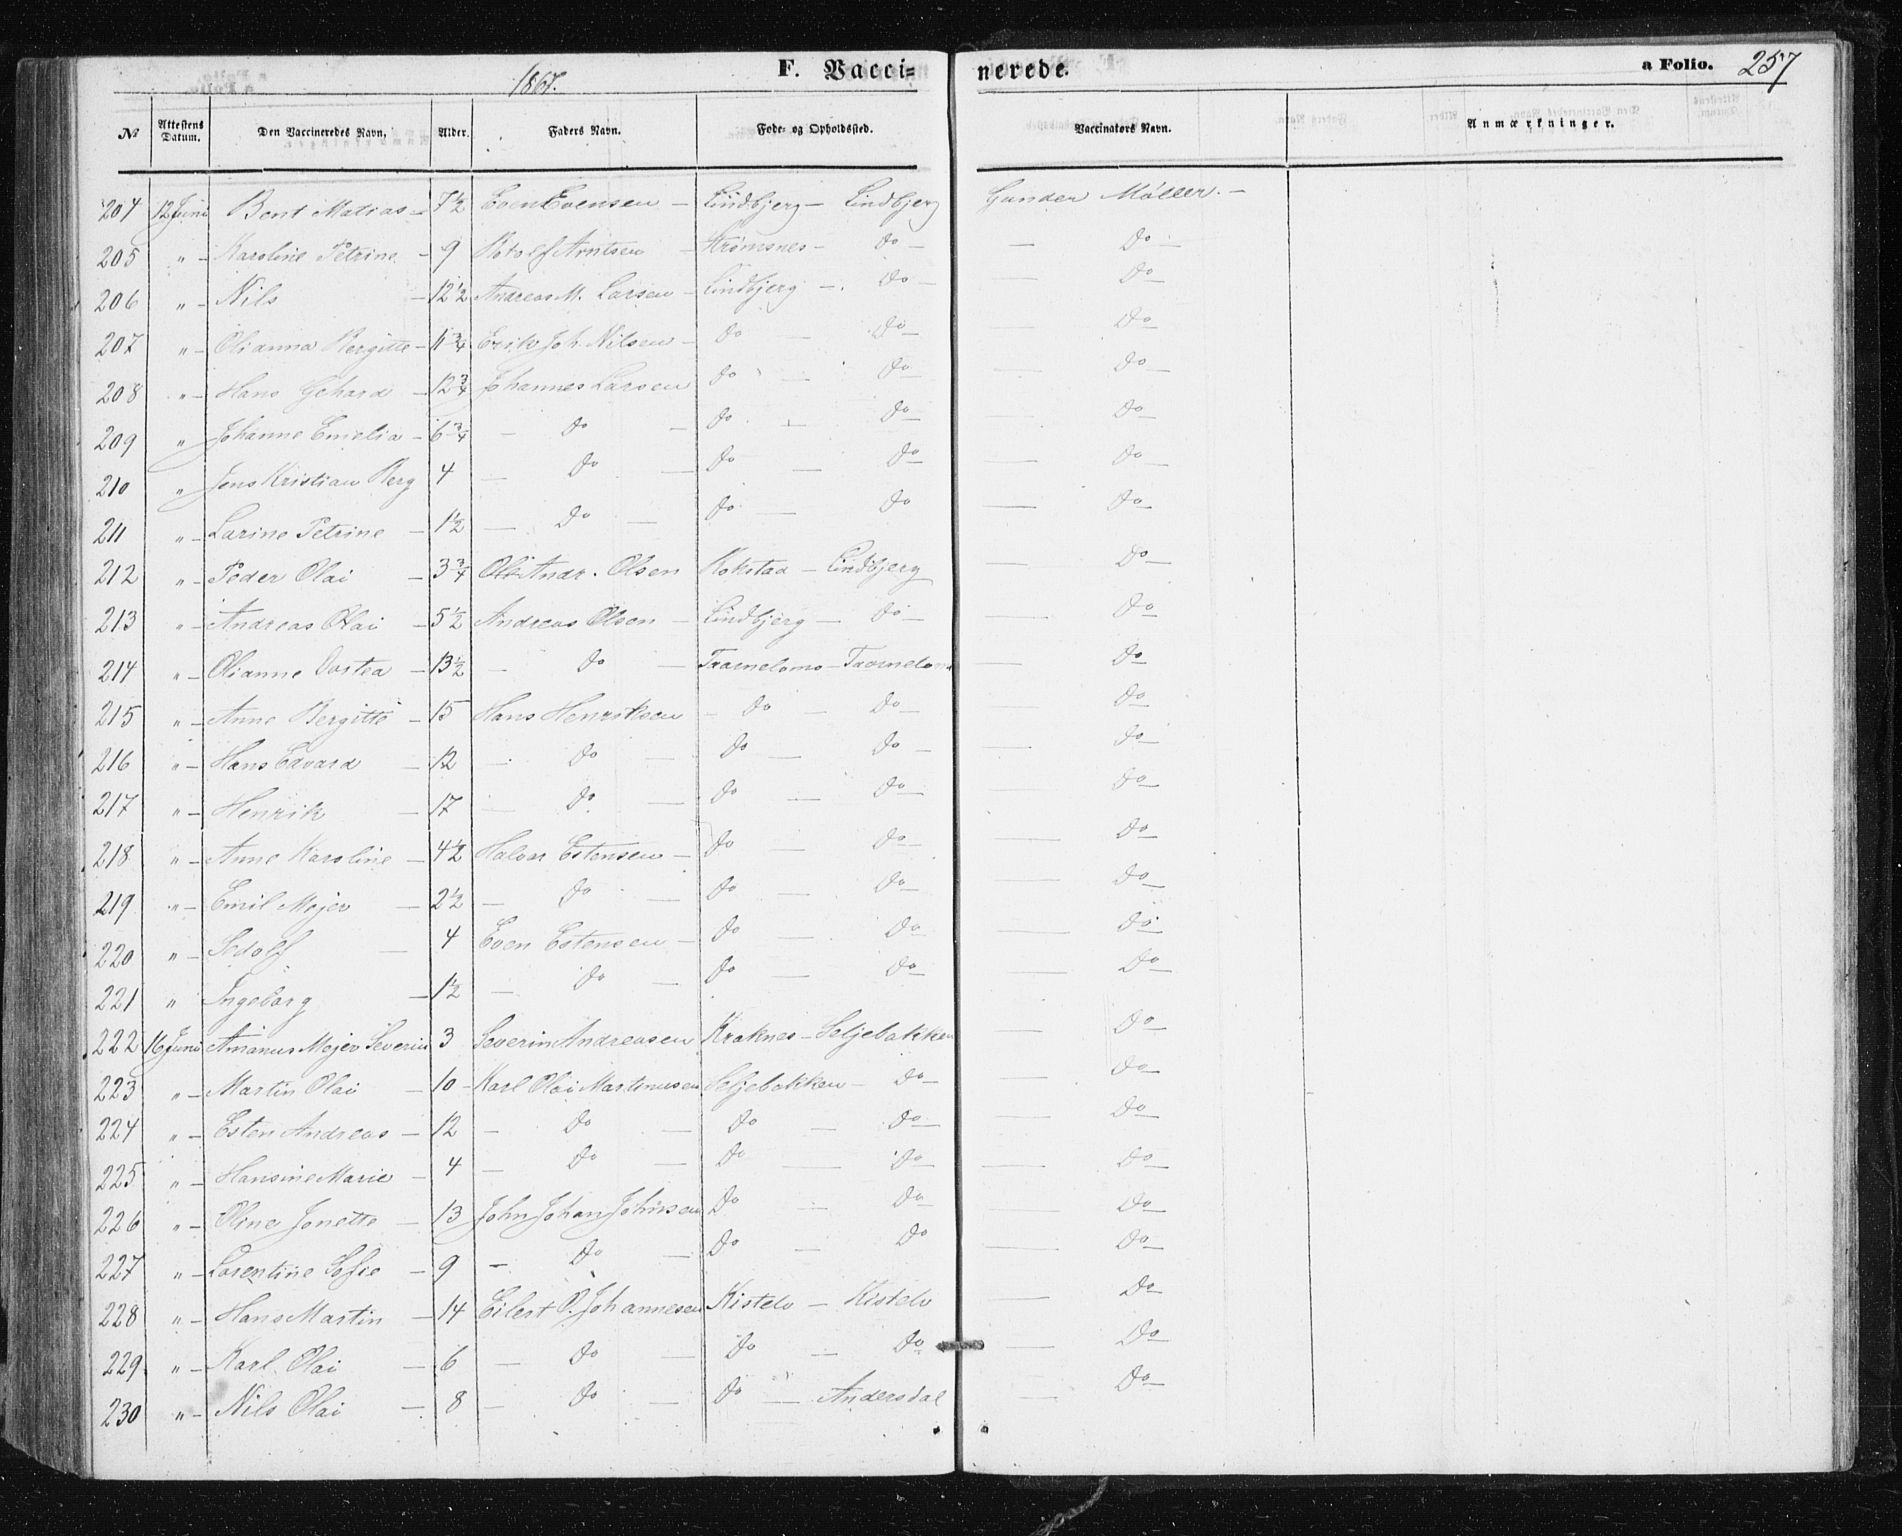 1867.
F. Vacci- nerede.
a Folio. 257
№ Attestens Datum. Den Vaccineredes Navn. Alder. Faders Navn. Føde- og Opholdssted. Vaccinators Navn. Anmærkninger.
204 12 Juni Bent Matias - 7½ Even Evensen - Lindbjerg - Lindbjerg Gunder Møller. -
205 " - Karoline Petrine - 9 Rotolf Arntsen Strømsnes - do - - Do -
206 " - Nils - 12½ Andreas M. Larsen - Lindbjerg - do - - Do
207 " - Olianna Bergitte - 11¾ Erik Joh. Nilsen - do - Do - - Do
208 " - Hans Gehard - 12¾ Johannes Larsen do - do - - Do -
209 " Johanne Emelia - 6¾ - do - do - do - Do -
210 " Jens Kristian Berg 4 - do - do - do - Do -
211 " - Larine Petrine - 1½ - do - do - do - Do -
212 " - Peder Olai - 3¾ Ole Andr. Olsen Rokstad - Lindbjerg - Do -
213 " - Andreas Olai - 5½ Andreas Olsen - Lindbjerg - do - - Do
214 " - Olianne Dortea - 13½ - do - Tromelomo - Tromelomo - Do
215 " - Anne Bergitte - 15 Hans Henriksen - do - do - - Do
216 " - Hans Edvard - 12 - do - do - do - - Do -
217 " - Henrik - 17 - do - do - do - - Do -
218 " - Anne Karoline - 4½ Halvor Estensen - do - do - - Do -
219 " - Emil Mejer - 2½ - do - do - do - - Do -
220 " - Sedolf - 4 Even Estensen - do - do - Do -
221 " Ingeborg - 1½ - do - do - do - Do -
222 16 Juni Amanus Mejer Severin 3 Severin Andreasen Kraknes - Seljebakken - Do
223 " - Martin Olai - 10 - Karl Olai Martinusen Seljebakken - do - - Do -
224 " - Esten Andreas - 12 - do - do - do - - Do -
225 " - Hansine Marie - 4 - do - do - do - - Do -
226 " - Oline Jonette - 13 John Johan Johnsen do - do - - Do -
227 " - Lorentine Sofie - 9 - do - do - do - Do -
228 " - Hans Martin - 14 Eilert O. Johannesen Kistelv - Kistelv - Do
229 " - Karl Olai - 6 - do - do - do - Do -
230 " - Nils Olai - 8 - do - do - Andersdal - Do -